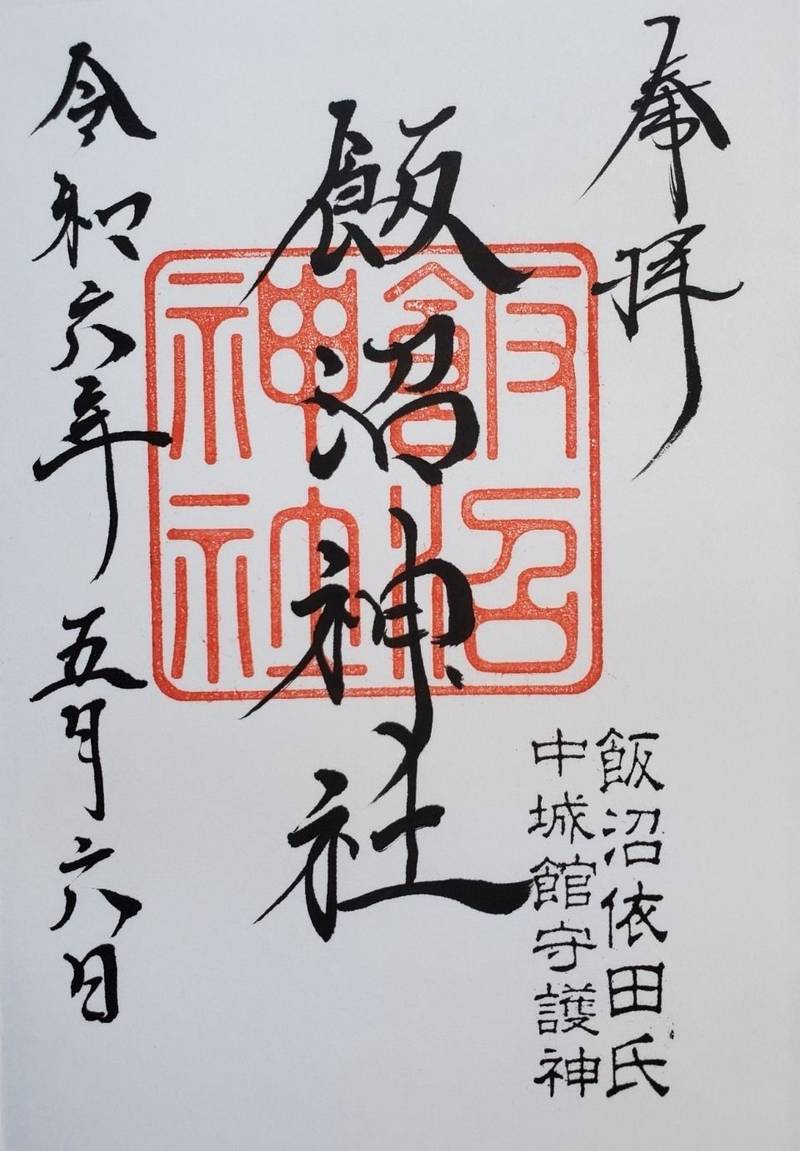 奉拝
飯沼依田氏
中城館守護神
飯沼神社
飯沼
神社
令和六年 五月六日